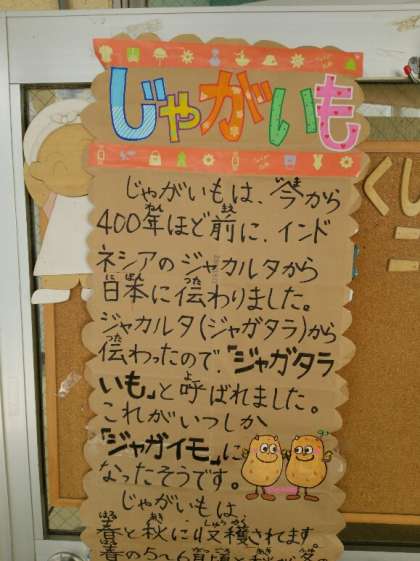 じゃがいも
じゃがいもは、今から
400年ほど前に、インド
ネシアのジャカルタから
日本に伝わりました。
ジャカルタ(ジャガタラ)から
伝わったので、「ジャガタラ
いも」と呼ばれました。
これがいつしか
「ジャガイモ」に
なったそうです。
じゃがいもは
春と秋に収穫されてます。
春の5~6月頃と